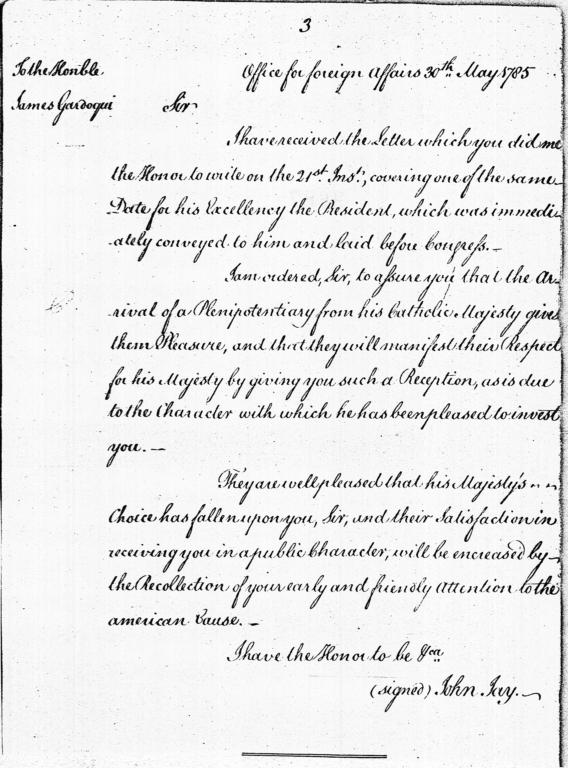 3
To the Honble
James Gardoqui
Office for foreign Affairs 30th May 1785
Sir
I have received the Letter which you did me
the Honor to write on the 21st Inst, covering one of the same
Date for his Excellency the President, which was immedi-
ately conveyed to him and laid before Congress. —
I am ordered, Sir, to assure you that the Ar-
rival of a Plenipotentiary from his Catholic Majesty gives
them Pleasure, and that they will manifest their Respect
for his Majesty by giving you such a Reception, as is due
to the Character with which he has been pleased to invest
you. —
They are well pleased that his Majesty's
Choice has fallen upon you, Sir, and their Satisfaction in
receiving you in a public Character, will be encreased by
the Recollection of your early and friendly Attention to the
american Cause. —
I have the Honor to be &ca
(signed) John Jay. —